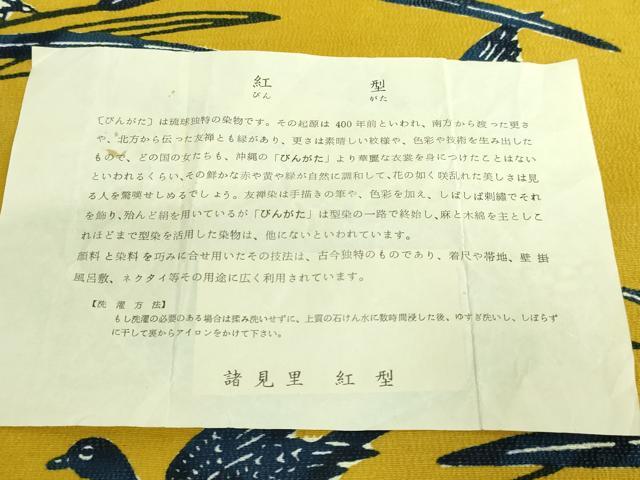 紅型
びんがた
〔びんがた〕は琉球独特の染物です。その起原は 400 年前といわれ、南方から渡った更さ
や、北方から伝った友禅とも縁があり、更さは素晴しい紋様や、色彩や技術を生み出した
もので、どの国の女たちも、沖縄の「びんがた」より華麗な衣裳を身につけたことはない
といわれるくらい、その鮮かな赤や黄や緑が自然に調和して、花の如く咲乱れた美しさは見
る人を驚嘆せしめるでしょう。友禅染は手描きの筆や、色彩を加え、しばしば刺繍でそれ
を飾り、殆んど絹を用いているが「びんがた」は型染の一路で終始し、麻と木綿を主としこ
れほどまで型染を活用した染物は、他にないといわれています。
顔料と染料を巧みに合せ用いたその技法は、古今独特のものであり、着尺や帯地、壁掛
風呂敷、ネクタイ等その用途に広く利用されています。
【洗濯方法】
もし洗濯の必要のある場合は揉み洗いせずに、上質の石けん水に数時間浸した後、ゆすぎ洗いし、しぼらず
に干して裏からアイロンをかけて下さい。
諸見里 紅型